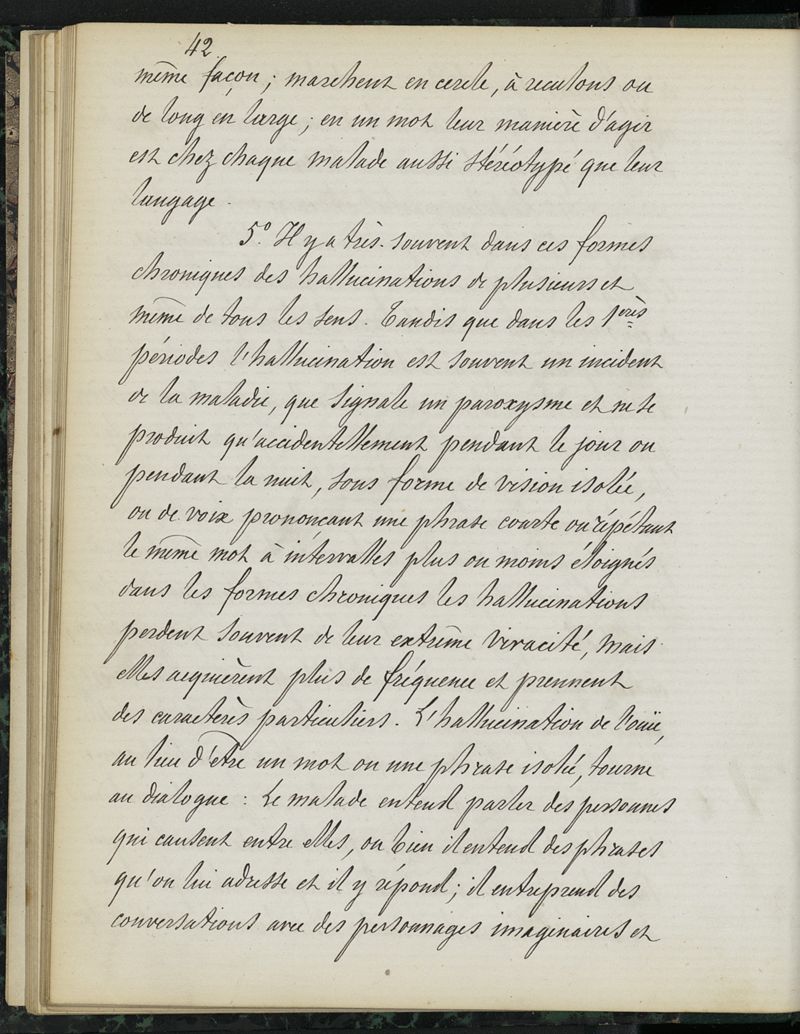 42
même façon ; marchent en cercle, à reculons ou
de long en large ; en un mot leur manière d'agir
est chez chaque malade aussi stéréotypé que leur
langage.
5° Il y a très souvent dans ces formes
chroniques des hallucinations de plusieurs et
même de tous les sens. Tandis que dans les 1ères
périodes l'hallucination est souvent un incident
de la maladie, que signale un paroxysme et ne se
produit qu'accidentellement pendant le jour ou
pendant la nuit, sous forme de vision isolée,
ou de voix prononcant une phrase courte ou répétant
le même mot à intervalles plus ou moins éloignés
dans les formes chroniques les hallucinations
perdent souvent de leur extrême vivacité, mais
elles acquièrent plus de fréquence et prennent
des caractères particuliers. L'hallucination de l'ouïe,
au lieu d'être un mot ou une phrase isolée, tourne
au dialogue : Le malade entend parler des personnes
qui causent entre elles, ou bien il entend des phrases
qu'on lui adresse et il y répond ; il entreprend des
conversations avec des personnages imaginaires et